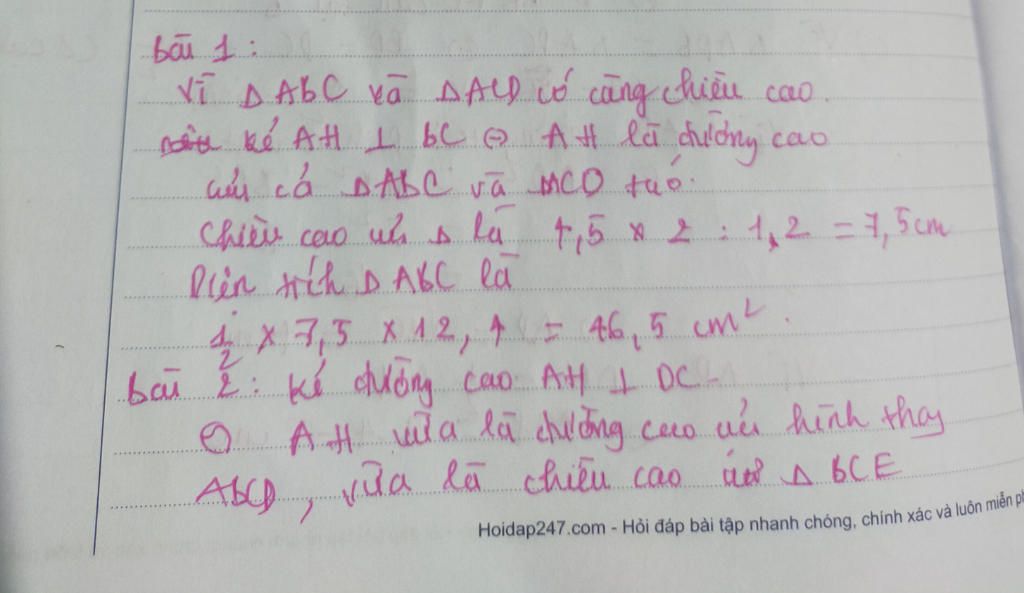 bài 1 :
Vì Δ ABC và Δ ACD có cùng chiều cao.
kẻ AH ⊥ BC ⇔ AH là đường cao
của cả Δ ABC và ACD
Chiều cao của Δ là 4,5 x 2 : 1,2 = 7,5 cm
Diện tích Δ ABC là
1/2 x 7,5 x 12,4 = 46,5 cm².
bài 2 : kẻ đường cao AH ⊥ DC
AH vừa là đường cao của hình thang
ABCD, vừa là chiều cao của Δ BCE
Hoidap247.com - Hỏi đáp bài tập nhanh chóng, chính xác và luôn miễn